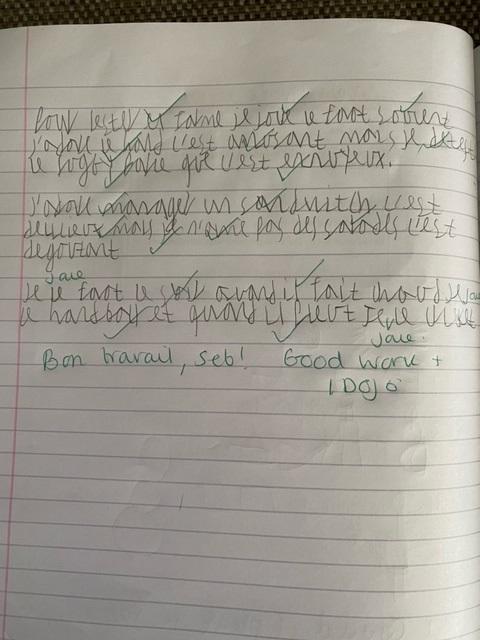 Pour rester y j'aime je joue le foot souvent
j'adore le hand c'est amusant mais je deteste
le rugby parce que c'est ennuyeux.
J'adore manager un sandwitch c'est
delicieux mais je n'aime pas des salades c'est
degoutant
joue
Je je foot le soir quand il fait chaud je joue
le handball et quand il pleut je le
joue.
Bon travail, Seb! Good work +
1 Dojo